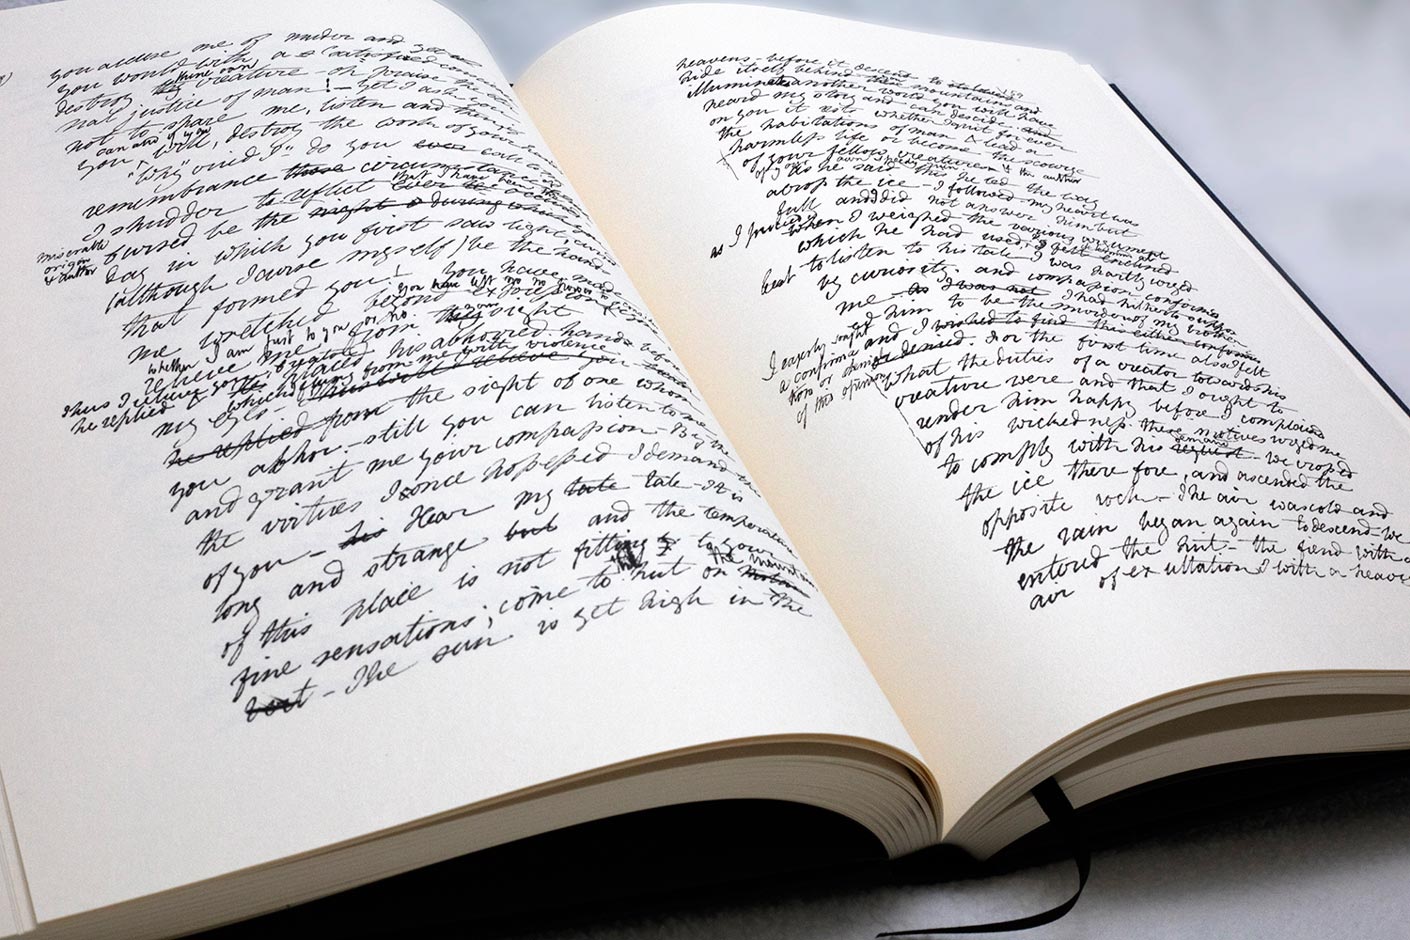 you accuse me of murder and yet
you would with a satisfied
destroy thine own creature – oh praise the eter
nal justice of man! – yet I ask you
not to spare me, listen and then if
you can and if you will, destroy the work of your
"Why" cried I – "do you call
remembrance those circumstances
I shudder to reflect that I have been the
miserable
origin
& author
cursed be the
day in which you first saw light,
(although I curse myself) be the hands
that formed you! you have made
me wretched beyond expression
you have left me no power to
whether I am just to you or no
relieve me from the sight
Thus I relieve
he replied
& placed his abhorred hands before
my eyes – which I flung from me with violence
he replied from the sight of one whom
you abhor – still you can listen to me
and grant me your compassion – By the
the virtues I once possessed I demand this
of you – his Hear my tale tale – It is
long and strange but and the temperature
of this place is not fitting to your
fine sensations; come to hut on the mountain
hut – The sun is yet high in the
heavens – before it descends to
hide itself behind the mountains and
illuminate another world you will have
heard my story and can decide
on you it rests whether I quit for ever
the habitations of man & lead a
harmless life or become the scourge
of your fellow creatures & the author
of your own speedy ruin
As he said this he led the way
across the ice – I followed – my heart was
full and I did not answer him but
as I proceeded when I weighed the various argument
which he had used, & I felt inclined
at least to listen to his tale I was partly urged
by curiosity. and compassion confirmed
me – As I was not I had hitherto supposed
him to be the murderer of my brother
I eagerly sought
a confirma
tion or denial
of this opinion
and I wished to find
or denied. For the first time also I felt
what the duties of a creator towards his
creature were and that I ought to
render him happy before I complained
of his wickedness. these motives urged me
to comply with his demand request – we crossed
the ice there fore, and ascended the
opposite rock – The air was cold and
the rain began again to descend – we
entered the hut – the fiend with a
air of exultation I with a heavy